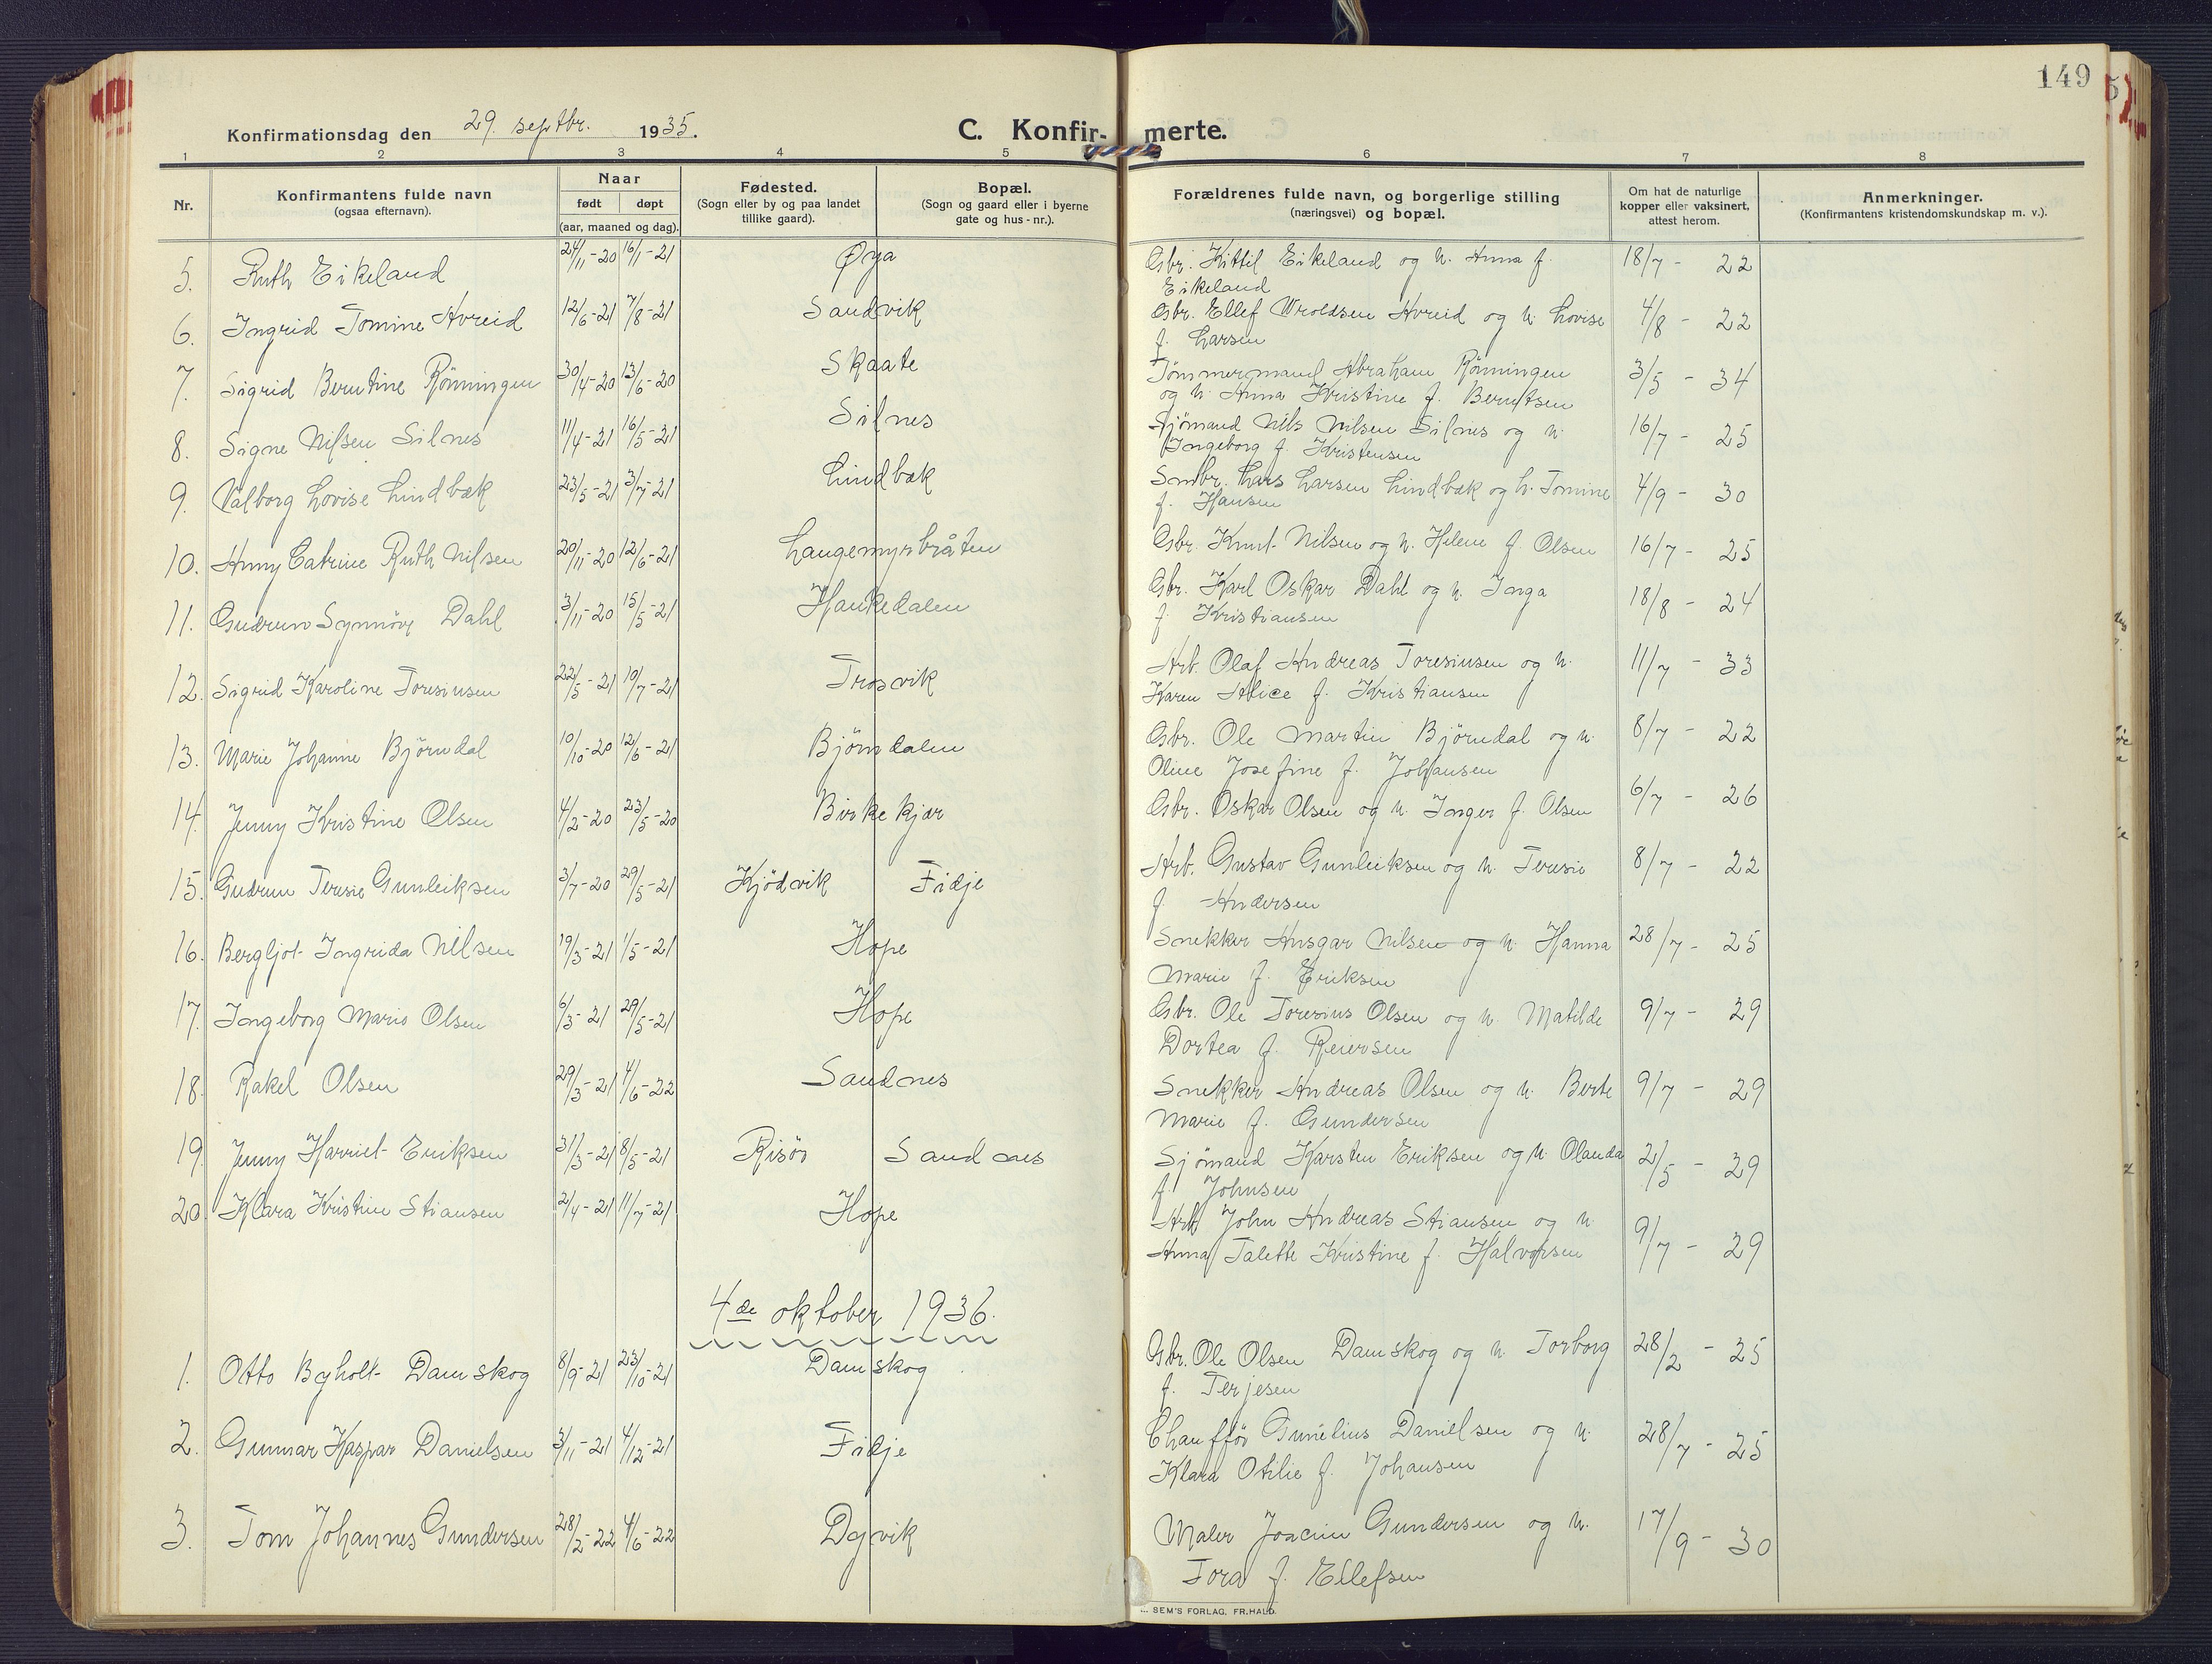 149
Konfirmationsdag den 29. septbr. 1935.
C. Konfir- merte.
1 2 3 4 5 6 7 8
Nr.
Konfirmantens fulde navn
(ogsaa efternavn).
Naar
født døpt
(aar, maaned og dag).
Fødested.
(Sogn eller by og paa landet
tillike gaard).
Bopæl.
(Sogn og gaard eller i byerne
gate og hus - nr.).
Forældrenes fulde navn, og borgerlige stilling
(næringsvei) og bopæl.
Om hat de naturlige
kopper eller vaksinert,
attest herom.
Anmerkninger.
(Konfirmantens kristendomskundskap m. v.).
5. Ruth Eikeland 24/11-20 16/1-21 Øya Gbr. Kittil Eikeland og h. Anna f. 18/7 - 22
Eikeland
6. Ingrid Tomine Avreid 12/6-21 7/8-21 Sandvik Gbr. Ellef Wroldsen Avreid og h. Lovise 4/8 - 22
f. Larsen
7. Sigrid Berntine Rönningen 30/4-20 13/6-20 Skaate Tömmermand Abraham Rönningen 3/5 - 34
og h. Anna Kristine f. Berntsen
8. Signe Nilsen Silnes 11/4-21 16/5-21 Silnes Sjömand Nils Nilsen Silnes og h. 16/7 - 25
Ingeborg f. Kristensen
9. Valborg Lovise Lindbæk 23/5-21 3/7-21 Lindbæk Smbr. Lars Larsen Lindbæk og h. Tomine 4/9 - 30
f. Hansen
10. Anny Catrine Ruth Nilsen 20/11-20 12/6-21 Langemyrbråten Gbr. Knut Nilsen og h. Helene f. Olsen 16/7 - 25
11. Gudrun Synnöve Dahl 3/11-20 15/5-21 Haukedalen Gbr. Karl Oskar Dahl og h. Inga 18/8 - 24
f. Kristiansen
12. Sigrid Karoline Toresinsen 22/5-21 10/7-21 Trosvik Arb. Olaf Andreas Toresinsen og h. 11/7 - 33
Karen Alice f. Kristiansen
13. Marie Johanne Björndal 10/10-20 12/6-21 Björndalen Gbr. Ole Martin Björndal og h. 8/7 - 22
Oline Josefine f. Johansen
14. Jenny Kristine Olsen 4/2-20 23/5-20 Birkekjær Gbr. Oskar Olsen og h. Inger f. Olsen 6/7 - 26
15. Gudrun Teresie Gunleiksen 3/7-20 29/5-21 Kjödvik Fidje Arb. Gustav Gunleiksen og h. Teresie 8/7 - 22
f. Andersen
16. Bergljot Ingrida Nilsen 19/3-21 1/5-21 Hope Snekker Ansgar Nilsen og h. Hanna 28/7 - 25
Marie f. Eriksen
17. Ingeborg Marie Olsen 6/3-21 29/5-21 Hope Gbr. Ole Toresius Olsen og h. Matilde 9/7 - 29
Dortea f. Reiersen
18. Rakel Olsen 29/3-21 4/6-22 Sandnes Snekker Andreas Olsen og h. Berte 9/7 - 29
Marie f. Gundersen
19. Jenny Harriet Eriksen 31/3-21 8/5-21 Risör Sandnes Sjömand Karsten Eriksen og h. Olanda 2/5 - 29
f. Johnsen
20. Klara Kristine Stiansen 2/4-21 11/7-21 Hope Arb. John Andreas Stiansen og h. 9/7 - 29
Anna Talette Kristine f. Halvorsen
4de oktober 1936.
1. Otto Byholt Damskog 8/9-21 23/10-21 Damskog Gbr. Ole Olsen Damskog og h. Torborg 28/2 - 25
f. Terjesen
2. Gunnar Kaspar Danielsen 3/11-21 4/12-21 Fidje Chauffør Gunelius Danielsen og h. 28/7 - 25
Klara Otilie f. Johansen
3. Tom Johannes Gundersen 28/2-22 4/6-22 Dyvik Maler Joacim Gundersen og h. 17/9 - 30
Tora f. Ellefsen
SEM'S FORLAG, FR.HALD.